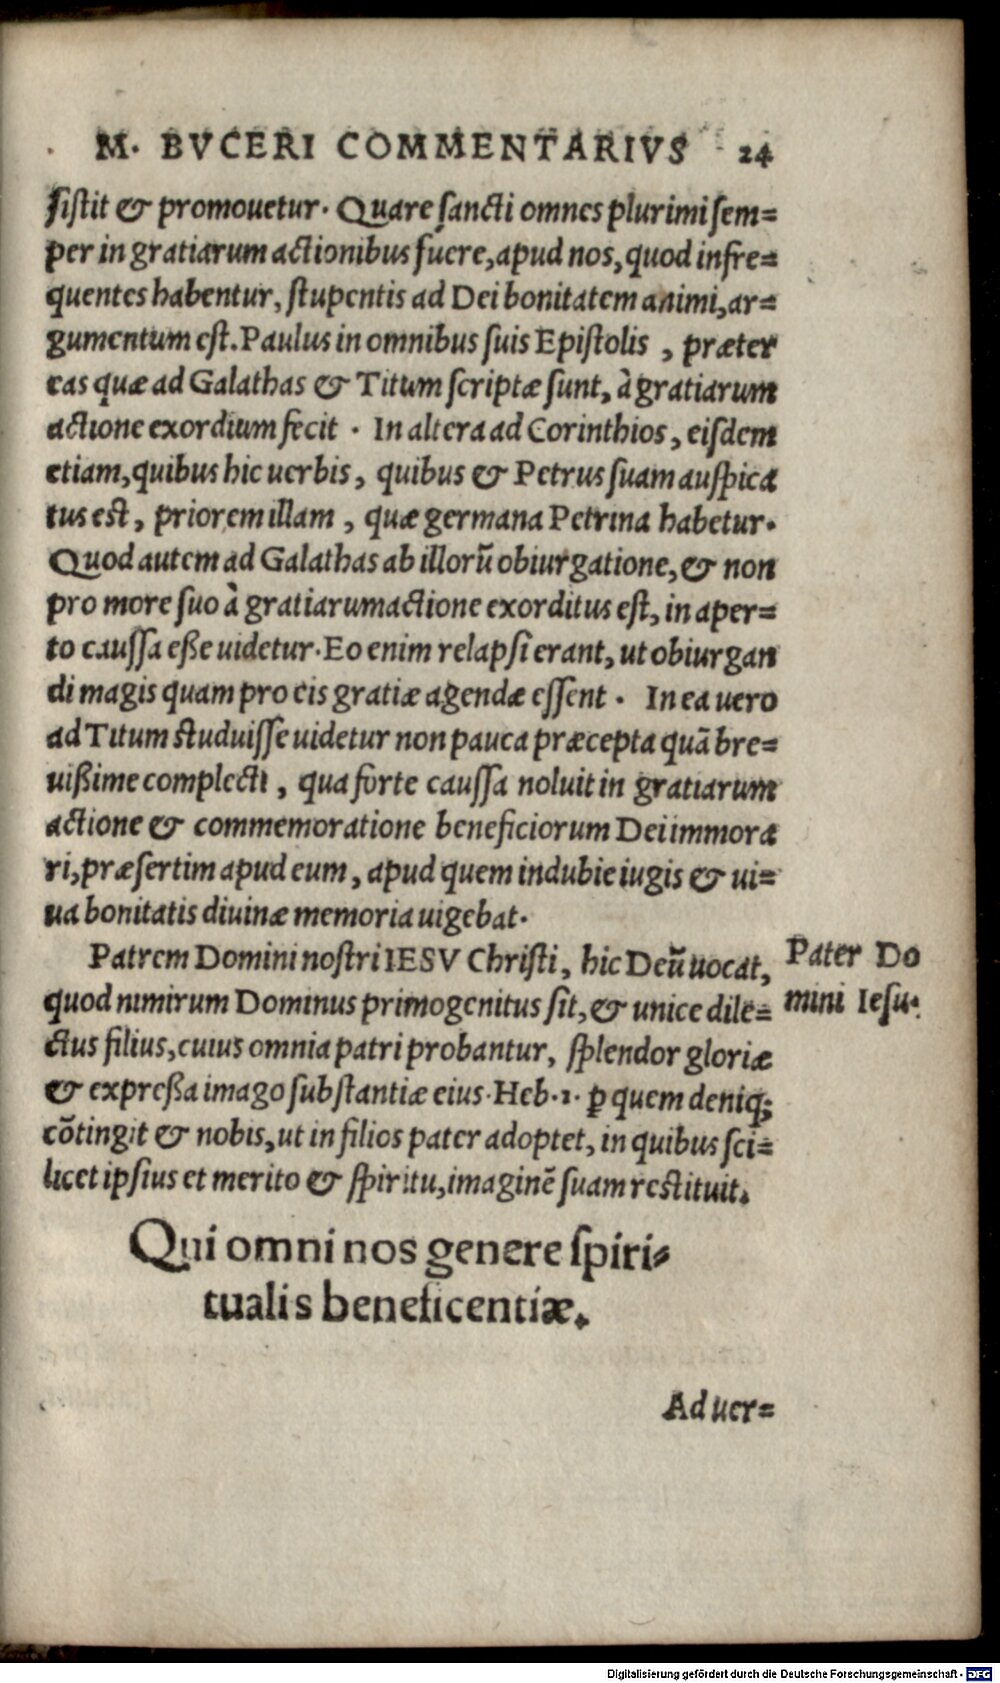 M. BVCERI COMMENTARIVS 24
sistit & promouetur. Quare sancti omnes plurimi sem=
per in gratiarum actionibus fuere, apud nos, quod infre=
quentes habentur, stupentis ad Dei bonitatem animi, ar=
gumentum est. Paulus in omnibus suis Epistolis, præter
eas quæ ad Galathas & Titum scriptæ sunt, à gratiarum
actione exordium fecit. In altera ad Corinthios, eisdem
etiam, quibus hic uerbis, quibus & Petrus suam auspica
tus est, priorem illam, quæ germana Petrina habetur.
Quod autem ad Galathas ab illorū obiurgatione, & non
pro more suo à gratiarumactione exorditus est, in aper=
to caussa eße uidetur. Eo enim relapsi erant, ut obiurgan
di magis quam pro eis gratiæ agendæ essent. In ea uero
ad Titum studuisse uidetur non pauca præcepta quā bre=
uißime complecti, qua forte caussa noluit in gratiarum
actione & commemoratione beneficiorum Dei immora
ri, præsertim apud eum, apud quem indubie iugis & ui=
ua bonitatis diuinæ memoria uigebat.
Patrem Domini nostri IESV Christi, hic Deū uocat,
quod nimirum Dominus primogenitus sit, & unice dile=
ctus filius, cuius omnia patri probantur, splendor gloriæ
& expreßa imago substantiæ eius. Heb. 1. ꝑ quem deniq;
cōtingit & nobis, ut in filios pater adoptet, in quibus sci=
licet ipsius et merito & spiritu, imaginē suam restituit.
Pater Do
mini Iesu.
Qui omni nos genere spiri=
tualis beneficentiæ.
Ad uer=
Digitalisierung gefördert durch die Deutsche Forschungsgemeinschaft - DFG